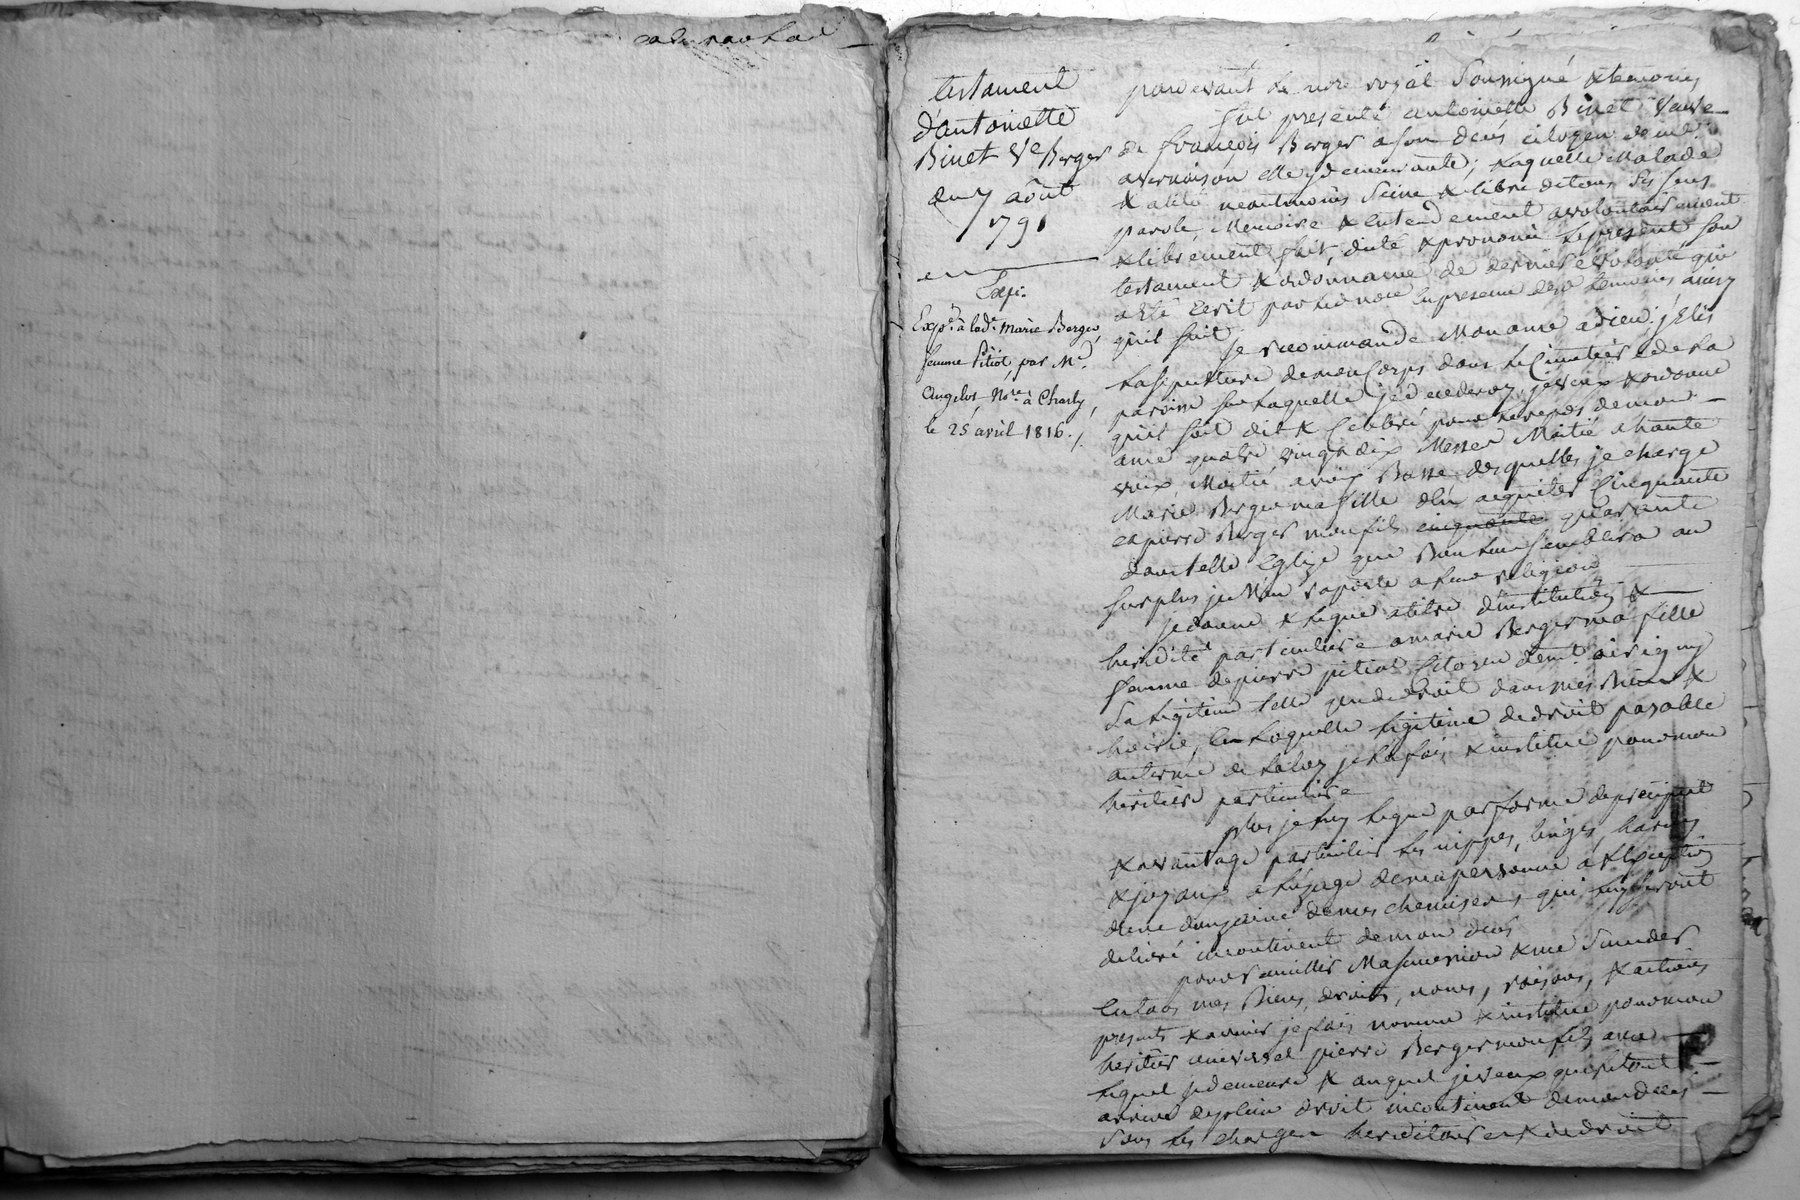 testament
d'antoinette
Binet Ve Berger
du 7 août
1791
Exp.
Expé. à lade. Marie Berger,
femme Pitiot, par Me.
Angelot Nore. à Charly,
le 25 avril 1816.
pardevant le nore royal soussigné & temoins
fut presente antoinette Binet veuve
de françois Berger a son deces citoyen demt.
a vernaison elle y demeurante; laquelle malade
& alité neantmoins seine & libre de tous ses sens
parole, memoire & entendement a volontairement
& librement fait, dicté & prononcé le present son
testament & ordonnance de derniere volonté qui
a eté ecrit par led nore en presence desd temoins ainsy
qu'il suit
je recommande mon ame a dieu; j'elis
la sepulture de mon corps dans le cimetiere de la
paroisse sur laquelle je decederay, je veux & ordonne
qu'il soit dit & celebré pour le repos de mon
ame quatre vingt dix messes moitié a haute
voix, moitié a voix basse desquelles je charge
Marie Berger ma fille d'en acquiter cinquante
et pierre Berger mon fils cinquante quarante
dans telle eglize que bon leur semblera au
surplus je m'en raporte a leur religion
je donne & legue a titre d'institution &
heridité particuliere a marie Berger ma fille
femme de pierre pitiot citoyen demt. a irigny
la legitime telle que de droit dans mes biens &
hoirie, en laquelle legitime de droit payable
au terme de la loy je la fais & institue pour mon
heritiere particuliere
plus je luy legue par forme de preciput
& avantage particulier les nippes, linges, hardes
& joyaux a l'usage de ma personne a l'exception
d'une douzaine de mes chemises, qui luy seront
delivré incontinent de mon deces
pour recueillir ma succession & me succeder
en tous mes biens, droits, noms, raisons, & actions
presents & avenir je fais nomme & institue pour mon
heritier universel pierre Berger mon fils avec
lequel je demeure & auquel je veux que le tout
arrive de plein droit incontinent de mon deces
sous les charges hereditaires & de droit